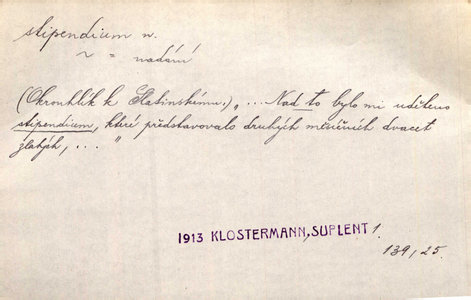 stipendium n.
~ = nadání
(Okrouhlík k Slabinskému:) „... Nad to bylo mi uděleno
stipendium, které představovalo druhých měsíčních dvacet
zlatých, ... "
1913 KLOSTERMANN, SUPLENT 1.
139, 25.